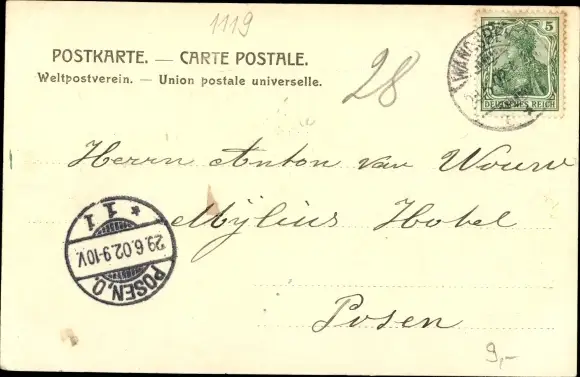 1119
POSTKARTE. — CARTE POSTALE.
Weltpostverein. — Union postale universelle.
28
5
DEUTSCHES REICH
Herrn Anton van Wouw
Mylius Hotel
Posen
* 1 1
29.6.02.9-10V.
POSEN.O.
9,-